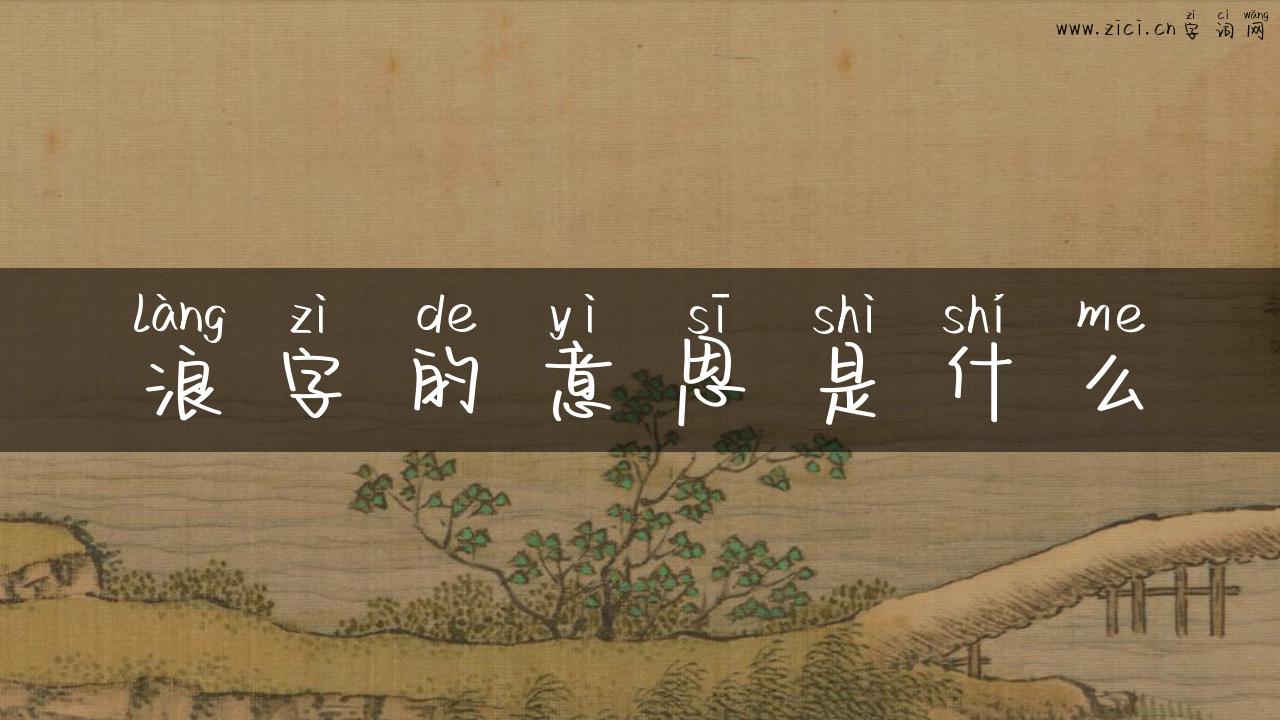 zì cí wǎng
www.zici.cn字词网
làng zì de yì sī shì shí me
浪字的意思是什么